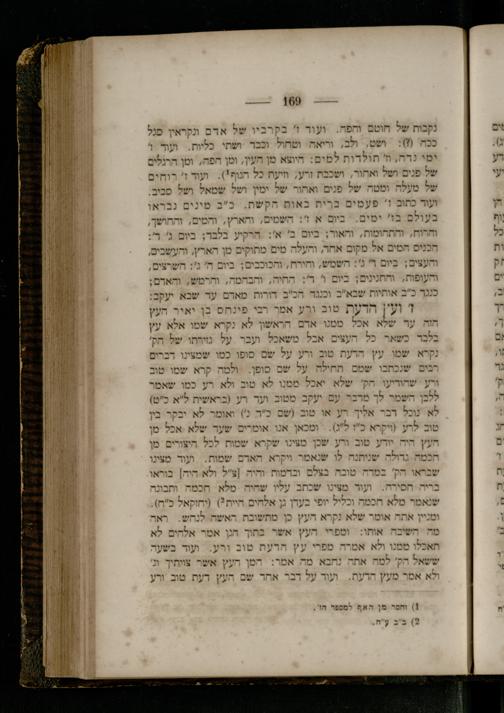 — 169 —
נקבות של חוטם והפה. ועוד ז' בקרביו של אדם ונקראין סגל
ככה (?): ושט, ולב, וריאה וטחול וכבד ושתי כליות. ועוד ז'
ימי נדה, וז' תולדות למים: היוצא מן העין, ומן הפה, ומן הרגלים
של פנים ושל ואחור, ושכבת זרע, וזיעת כל הגוף¹). ועוד ז' רוחים
של מעלה ומטה של פנים ואחור של ימין ושל שמאל ושל סביב.
ועוד כתוב ז' פעמים ברית באות הקשת. כ"ב מינים נבראו
בעולם בז' ימים. ביום א' ז': השמים, והארץ, והמים, והחושך,
והרוח, והתהומות, והאור; ביום ב' א': הרקיע בלבד; ביום ג' ד':
הכניס המים אל מקום אחד, והעלה מים מתוקים מן הארץ, והעשבים,
והעצים; ביום ד' ג': השמש, והירח, והכוכבים; ביום ה' ג': השרצים,
והעופות, והתנינים; ביום ו' ד': החיה, והבהמה, והרמש, והאדם;
כנגד כ"ב אותיות שבא"ב וכנגד הכ"ב דורות מאדם עד שבא יעקב:
ז ועץ הדעת טוב ורע אמר רבי פינחס בן יאיר העץ
הזה עד שלא אכל ממנו אדם הראשון לא נקרא שמו אלא עץ
בלבד כשאר כל העצים אבל משאכל ועבר על גזירתו של הק'
נקרא שמו עץ הדעת טוב ורע על שם סופן כמו שמצינו דברים
רבים שנכתבו שמם תחילה על שם סופן. ולמה קרא שמו טוב
ורע שהודיעו הק' שלא יאכל ממנו לא טוב ולא רע כמו שאמר
ללבן השמר לך מדבר עם יעקב מטוב ועד רע (בראשית ל"א כ"ט)
לא נוכל דבר אליך רע או טוב (שם כ"ד נ') ואומר לא יבקר בין
טוב לרע (ויקרא כ"ז ל"ג). ומכאן אנו אומרים שעד שלא אכל מן
העץ היה יודע טוב ורע שכן מצינו שקרא שמות לכל היצורים מן
חכמה גדולה שניתנה לו שנאמר ויקרא האדם שמות. ועוד מצינו
שבראו הק' במדה טובה בצלם ובדמות והיה [צ"ל ולא היה] בוראו
בריה חסירה. ועוד מצינו שכתב עליו שהיה מלא חכמה ותבונה
שנאמר מלא חכמה וכליל יופי בעדן גן אלהים היית²) (יחזקאל כ"ח).
ומניין אתה אומר שלא נקרא העץ כן מתשובת האשה לנחש. ראה
מה השיבה אותו: ומפרי העץ אשר בתוך הגן אמר אלהים לא
תאכלו ממנו ולא אמרה מפרי עץ הדעת טוב ורע. ועוד בשעה
ששאל הק' למה אתה נחבא מה אמר: המן העץ אשר צויתיך וג'
ולא אמר מעץ הדעת. ועוד על דבר אחד שם העץ דעת טוב ורע
1) וחסר מן האף למספר הז'.
2) ב"ב ע"ח.